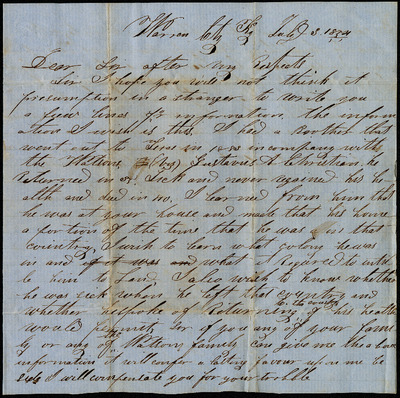 Warren Cty Ky July 3. 18
Dear Sir after My respects
Sir I hope you will not think it
presumption in a stranger to write you
a few lines for information. the inform
ation I wish is this. I had a brother that
went out to Texas in in company with
the Pattons & Christian, he
returned Sick and never regained his he
alth and died in I learned from him that
he was at your house and made that his home
a portion of the time that he was in that
country, I wish to learn what colony he was
in and what it required to entitle
him to land. I also wish to know whether
he was sick when he left that country and
whether he spoke of returning if his health
would permit, Sir if you any of your fami
ly or any of Pattons family can give me the above
information it will confer a lasting favour upon me be
I will compensate you for your trouble